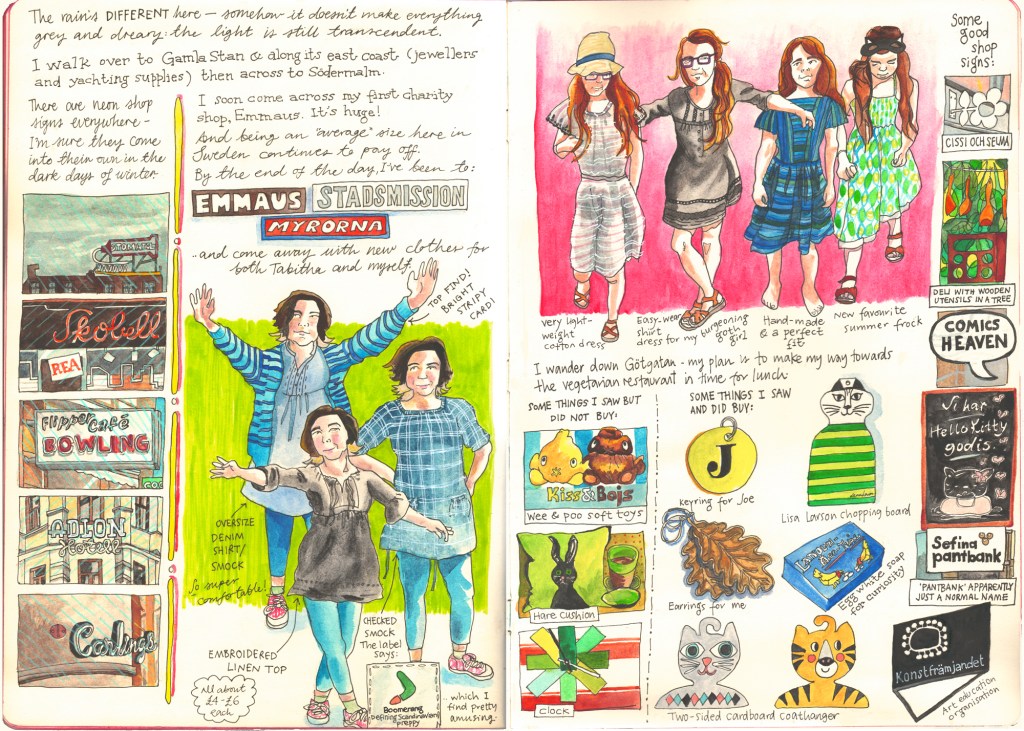 The rain's DIFFERENT here – somehow it doesn't make everything
grey and dreary: the light is still transcendent.
I walk over to Gamla Stan & along its east coast (jewellers
and yachting supplies) then across to Södermalm.
There are neon shop
signs everywhere –
I'm sure they come
into their own in the
dark days of winter.
STOMATOL
Skobell
REA
Flipper Café
BOWLING
ADLON
Hotell
Carlings
I soon come across my first charity
shop, Emmaus. It's huge!
And being an "average" size here in
Sweden continues to pay off.
By the end of the day, I've been to:
EMMAUS STADSMISSION
MYRORNA
...and come away with new clothes for
both Tabitha and myself.
TOP FIND!
BRIGHT
STRIPY
CARDI
OVERSIZE
DENIM
SHIRT/
SMOCK
So super
comfortable!
EMBROIDERED
LINEN TOP
All about
£4-£6
each
CHECKED
SMOCK
The label
says:
Boomerang
Defining Scandinavian
preppy
...which I
find pretty
amusing.
Very light-
weight
cotton dress
Easy-wear
shirt
dress for my burgeoning
goth
girl
Hand-made
& a perfect
fit
New favourite
summer frock
I wander down Götgatan – my plan is to make my way towards
the vegetarian restaurant in time for lunch.
SOME THINGS I SAW BUT
DID NOT BUY:
Kiss & Bajs
Wee & poo soft toys
Hare cushion
Clock
SOME THINGS I SAW
AND DID BUY:
J
Keyring for Joe
Lisa Larson chopping board
Earrings for me
Egg white soap
for curiosity
Two-sided cardboard coathanger
Some
good
shop
signs:
CISSI OCH SELMA
DELI WITH WOODEN
UTENSILS IN A TREE
COMICS
HEAVEN
Vi har
Hello Kitty
godis
Sefina
pantbank
'PANTBANK' APPARENTLY
JUST A NORMAL NAME
Konstfrämjandet
Art education
organisation